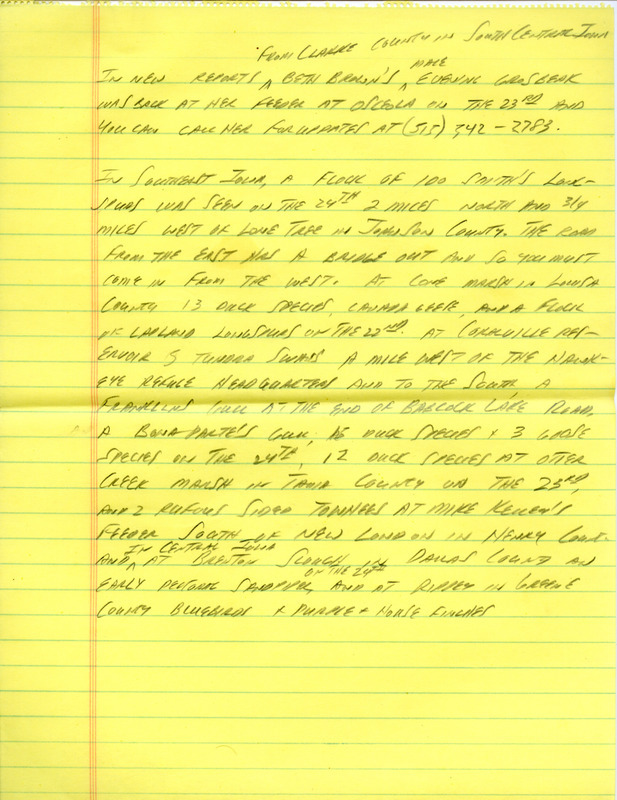 FROM CLARKE COUNTY IN SOUTH CENTRAL IOWA
MALE
IN NEW REPORTS ^ BETH BROWN'S ^ EVENING GROSBEAK
WAS BACK AT HER FEEDER AT OSCEOLA ON THE 23RD AND
YOU CAN CALL HER FOR UPDATES AT (515) 342-2783.
IN SOUTHEAST IOWA, A FLOCK OF 100 SMITH'S LONG-
SPURS WAS SEEN ON THE 24TH 2 MILES NORTH AND 3/4
MILES WEST OF LONE TREE IN JOHNSON COUNTY. THE ROAD
FROM THE EAST HAS A BRIDGE OUT AND SO YOU MUST
COME IN FROM THE WEST. AT CONE MARSH IN LOUISA
COUNTY 13 DUCK SPECIES, CANADA GEESE, AND A FLOCK
OF LAPLAND LONGSPURS ON THE 22ND. AT CORALVILLE RES-
ERVOIR 5 TUNDRA SWANS A MILE WEST OF THE HAWK-
EYE REFUGE HEADQUARTERS AND TO THE SOUTH A
FRANKLINS GULL AT THE END OF BABCOCK LAKE ROAD,
A BONAPARTE'S GULL, 15 DUCK SPECIES + 3 GOOSE
SPECIES ON THE 24TH, 12 DUCK SPECIES AT OTTER
CREEK MARSH IN TAMA COUNTY ON THE 23RD,
AND 2 RUFOUS SIDED TOWHEES AT MIKE KELLEY'S
FEEDER SOUTH OF NEW LONDON IN HENRY COUNTY.
IN CENTRAL IOWA
AND ^ AT BRENTON SLOUGH IN DALLAS COUNTY AN
ON THE 24TH
EARLY PECTORAL SANDPIPER, AND AT RIPPEY IN GREENE
COUNTY BLUEBIRDS + PURPLE + HOUSE FINCHES